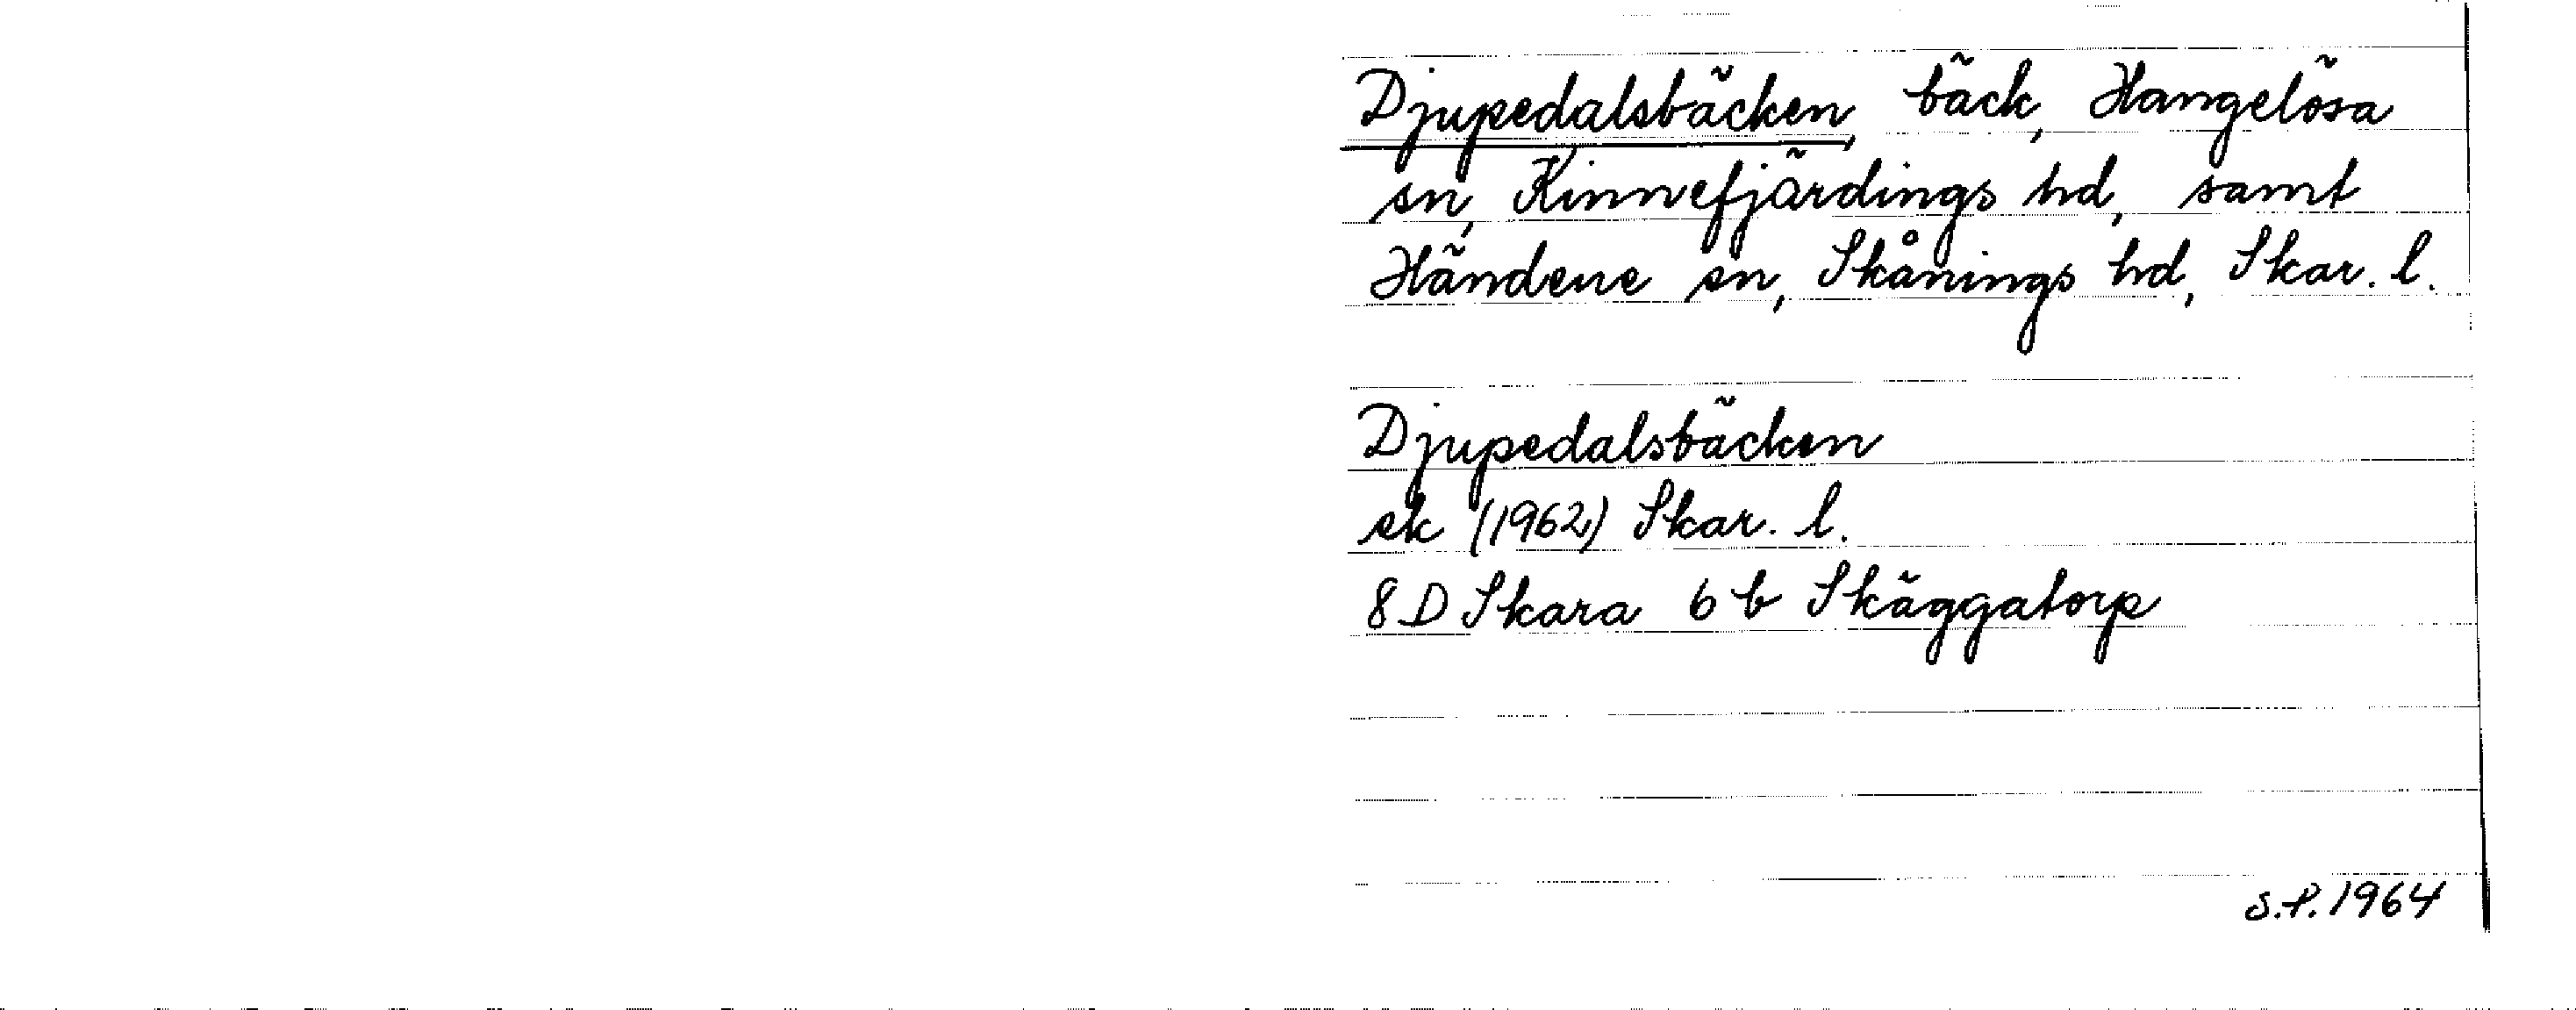 Djupedalsbäcken, bäck, Hangelösa
sn, Kinnefjärdings hd, samt
Händene sn, Skånings hd, Skar. l.
Djupedalsbäcken
ek (1962) Skar. l.
8 D Skara 6 b Skäggatorp
S.P. 1964